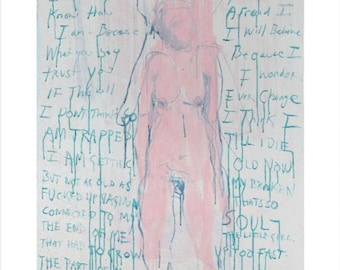 I
Know How
I am - Because
What you Say
trust you
If They all
I Dont think
AM TRAPPED
I AM GETTING
BUT NOT AS OLD AS
FUCKED UP NASIUM
CONNECTED TO MY
THE END OF ME
THAT HAD TO GROW
THE PART OF
Afraid I
I Will Become
Because I
I Wonder
Ever Change
I Think I
TILL I DIE
OLD NOW
MY BROKEN
THATS SO
SOUL
THIS LITTLE GIRL
UP TOO FAST